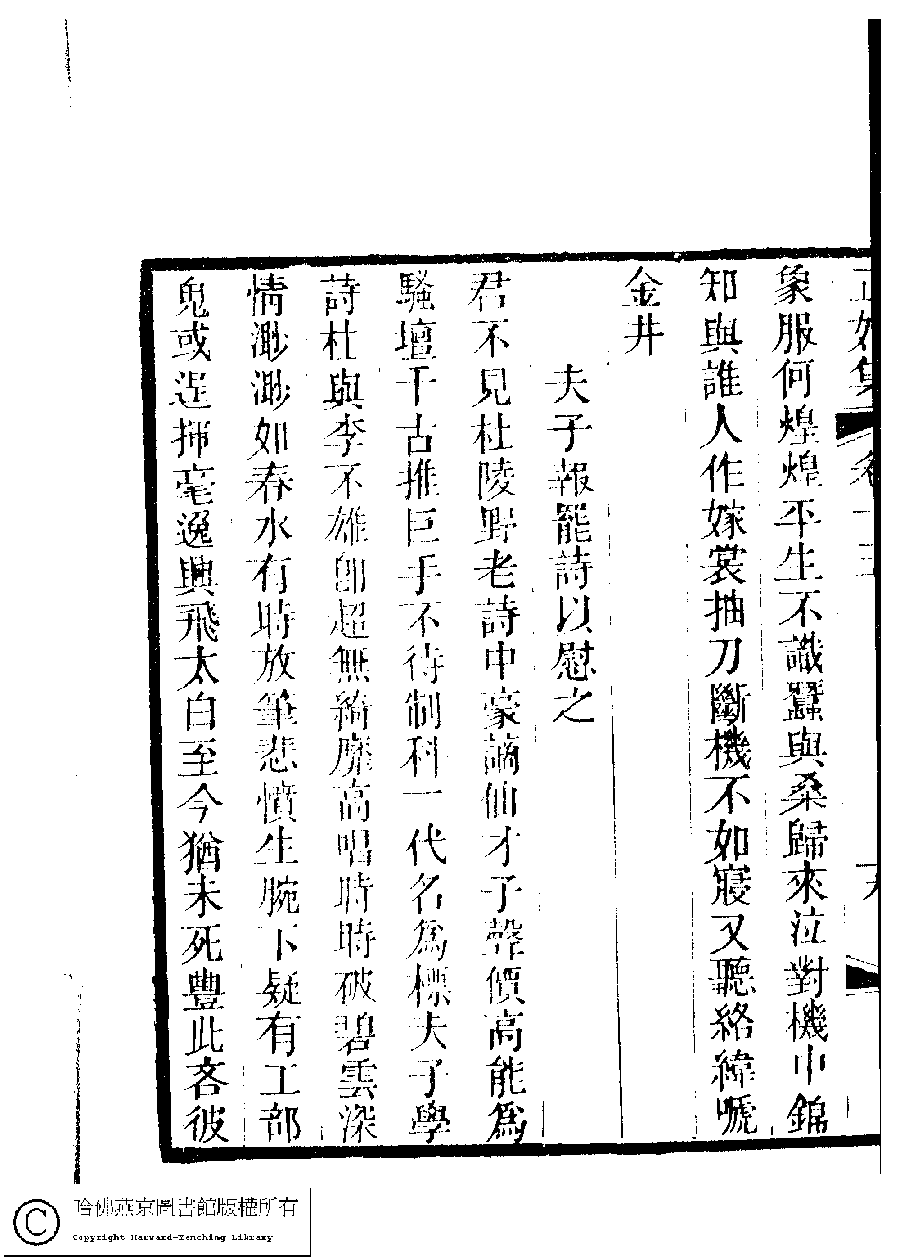 象服何煌煌平生不識蠶與桑歸來泣對機中錦
知與誰人作嫁裳抽刀斷機不如寢又聽絡緯嗁
金井
夫子報罷詩以慰之
君不見杜陵野老詩中豪謫仙才子聲價高能爲
騷壇千古推巨手不待制科一代名爲標夫子學
詩杜與李不雄卽超無綺靡高唱時時破碧雲深
情渺渺如春水有時放筆悲憤生腕下疑有工部
鬼或逞揮毫逸興飛太白至今猶未死豐此吝彼
哈佛燕京圖書館版權所有
Copyright Harvard-Yenching Library